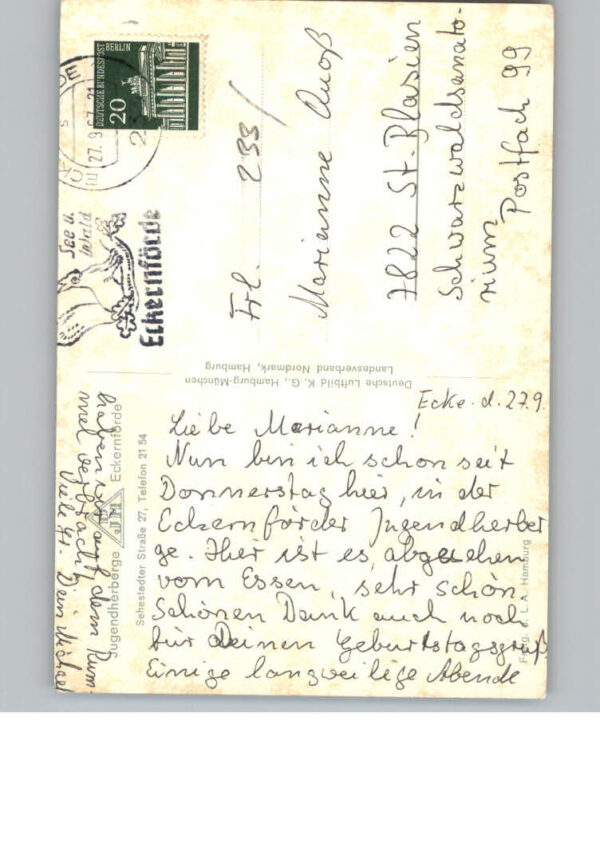 Ecke. d. 27.9.
Liebe Marianne!
Nun bin ich schon seit
Donnerstag hier, in der
Eckernförder Jugendherber
ge. Hier ist es, abgesehen
vom Essen, sehr schön.
Schönen Dank auch noch
für Deinen Geburtstagsgruß.
Einige langweilige Abende
haben wir auf dem Rum-
mel verbracht.
Viele Gr. Dein Michael
Jugendherberge Eckernförde
Sehestedter Straße 27, Telefon 21 54
DJH
Deutsche Luftbild K. G., Hamburg-München
Landesverband Nordmark, Hamburg
L. A. Hamburg
DEUTSCHE BUNDESPOST
BERLIN
20
27. 9. 67-21
See u.
Wald
Eckernförde
233/
Frl.
Marianne
7822 St. Blasien
Schwarzwaldsanato-
rium Postfach 99